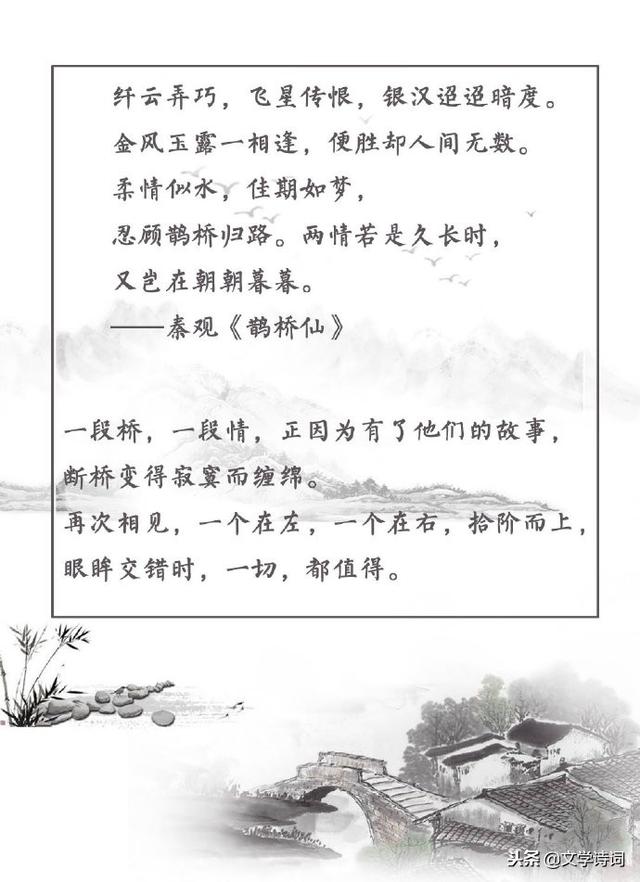 纤云弄巧，飞星传恨，银汉迢迢暗度。
金风玉露一相逢，便胜却人间无数。
柔情似水，佳期如梦，
忍顾鹊桥归路。两情若是久长时，
又岂在朝朝暮暮。
——秦观《鹊桥仙》
一段桥，一段情，正因为有了他们的故事，
断桥变得寂寞而缠绵。
再次相见，一个在左，一个在右，拾阶而上，
眼眸交错时，一切，都值得。
头条@文学诗词